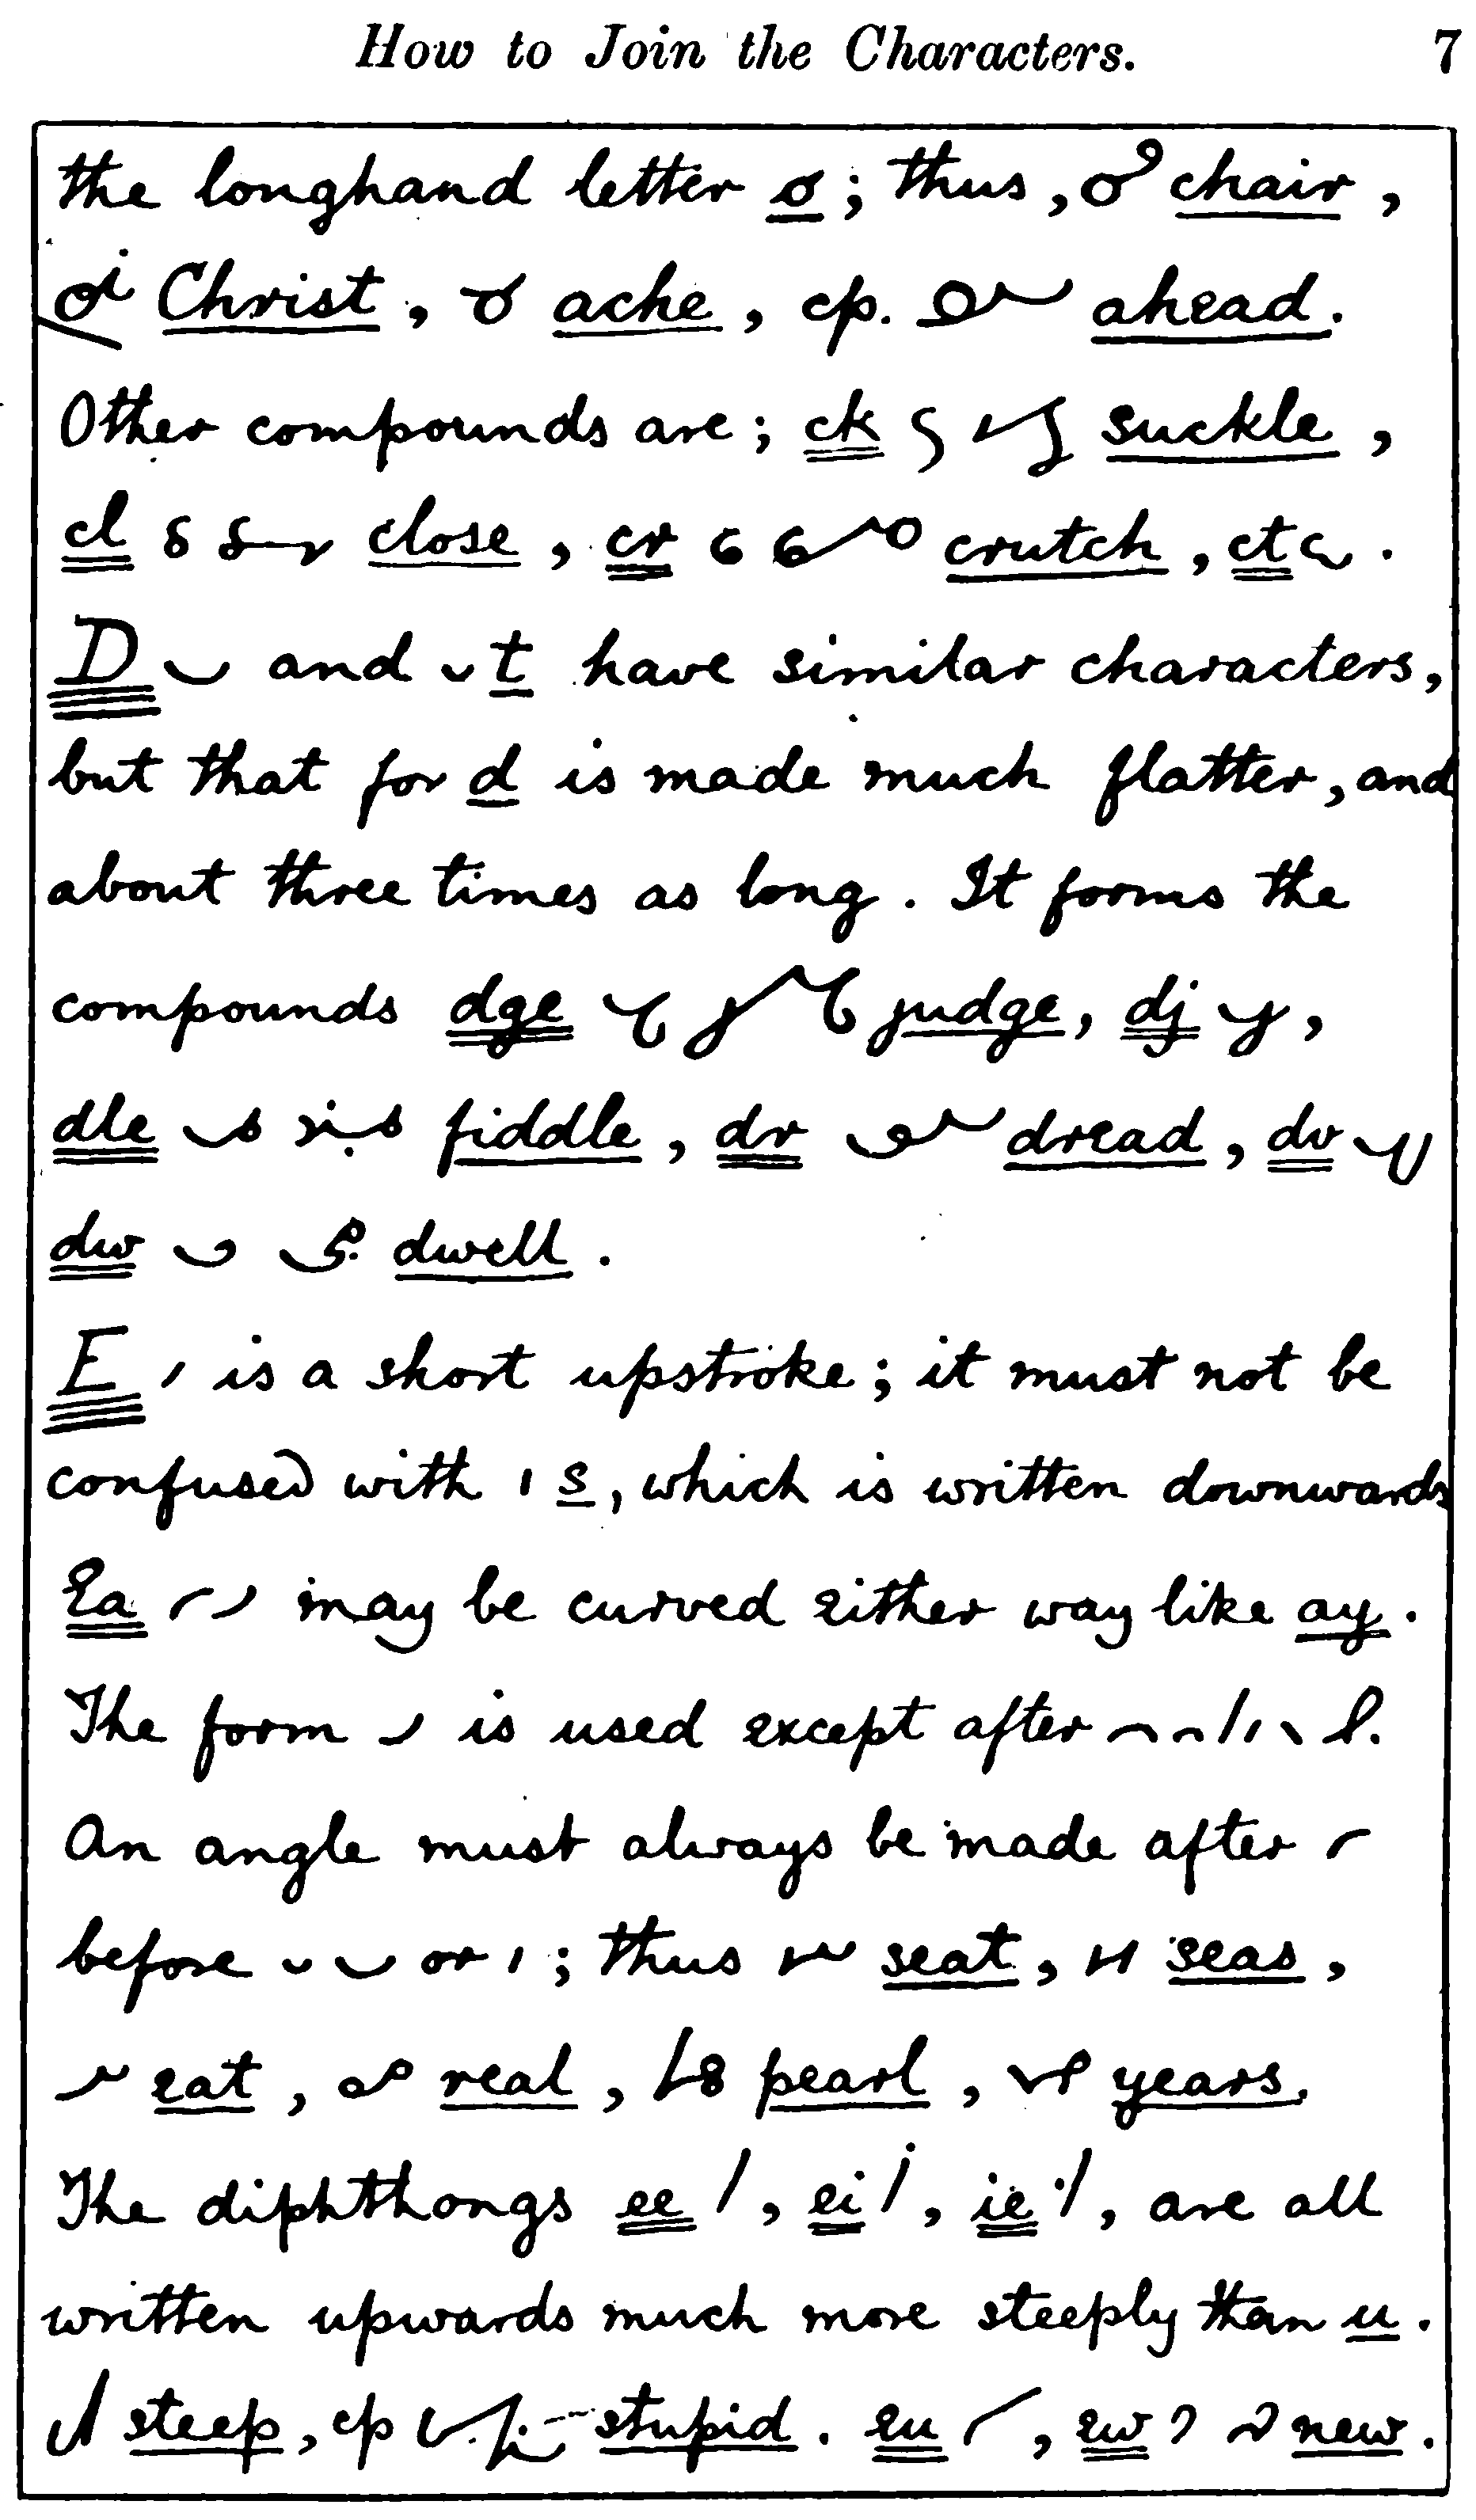 How to Join the Characters. 7
the longhand letter o; thus, chair,
Christ, ache, cp. ahead.
Other compounds are; ck suckle,
cl close, cr crutch, ct.
D and t have similar characters,
but that for d is made much flatter, and
about three times as long. It forms the
compounds dge judge, dj,
dle fiddle, dr dread, dv
dw dwell.
E is a short upstroke; it must not be
confused with s, which is written downwards
Ea may be curved either way like ay.
The form is used except after
An angle must always be made after
before or ; thus seat, seas,
eat, real, pearl, years.
The diphthongs ee, ei, ie, are all
written upwards much more steeply than u.
steep, cp stupid. eu, ew new.